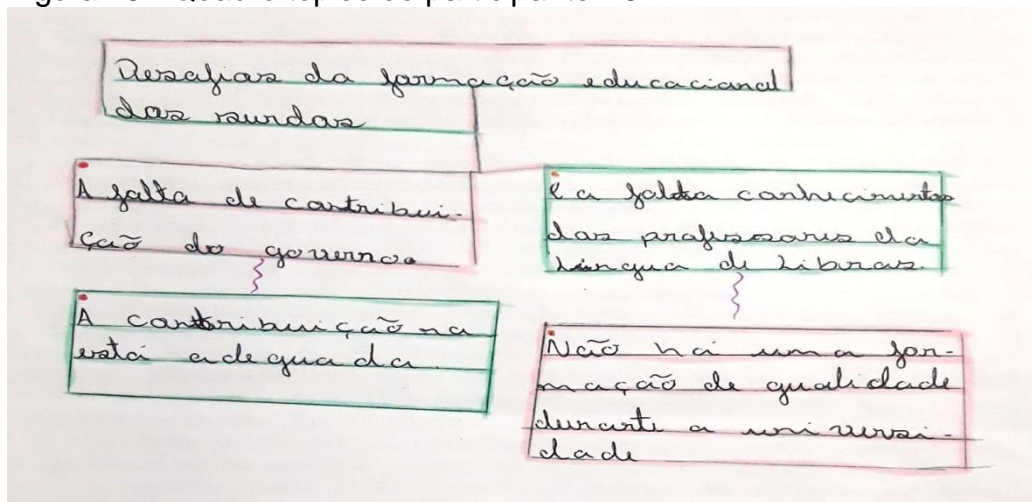 Desafios da formação educacional
dos surdos
A falta de contribui-
ção do governo.
A contribuição na
está adequada.
e a falta conhecimentos
dos professores da
Língua de Libras.
Não há uma for-
mação de qualidade
durante a universi-
dade